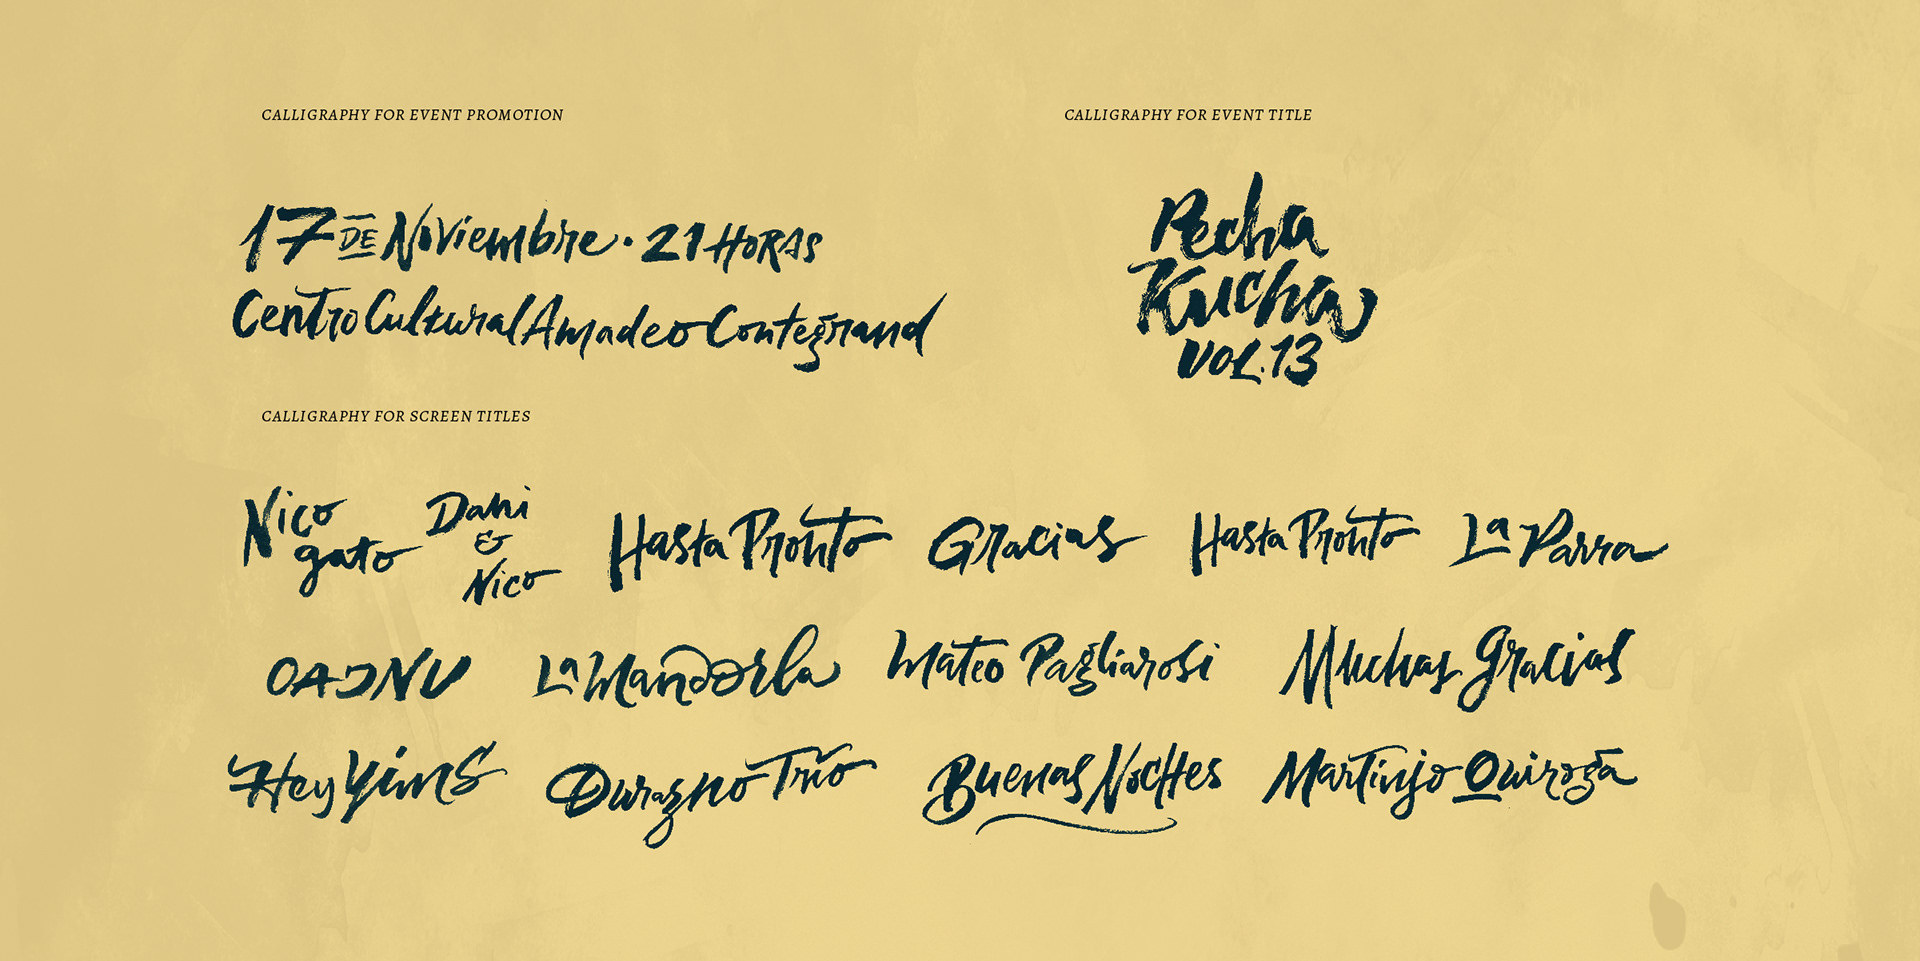 CALLIGRAPHY FOR EVENT PROMOTION
17 DE Noviembre · 21 HORAS
Centro Cultural Amadeo Contegrand
CALLIGRAPHY FOR EVENT TITLE
Pecha
Kucha
VOL.13
CALLIGRAPHY FOR SCREEN TITLES
Nico
gato
Dani
&
Nico
Hasta Pronto
Gracias
Hasta Pronto
La Parra
OAJNU
La Mandorla
Mateo Pagliarosi
Muchas Gracias
Hey Yims
Durazno Trío
Buenas Noches
Martinjo Quiroga